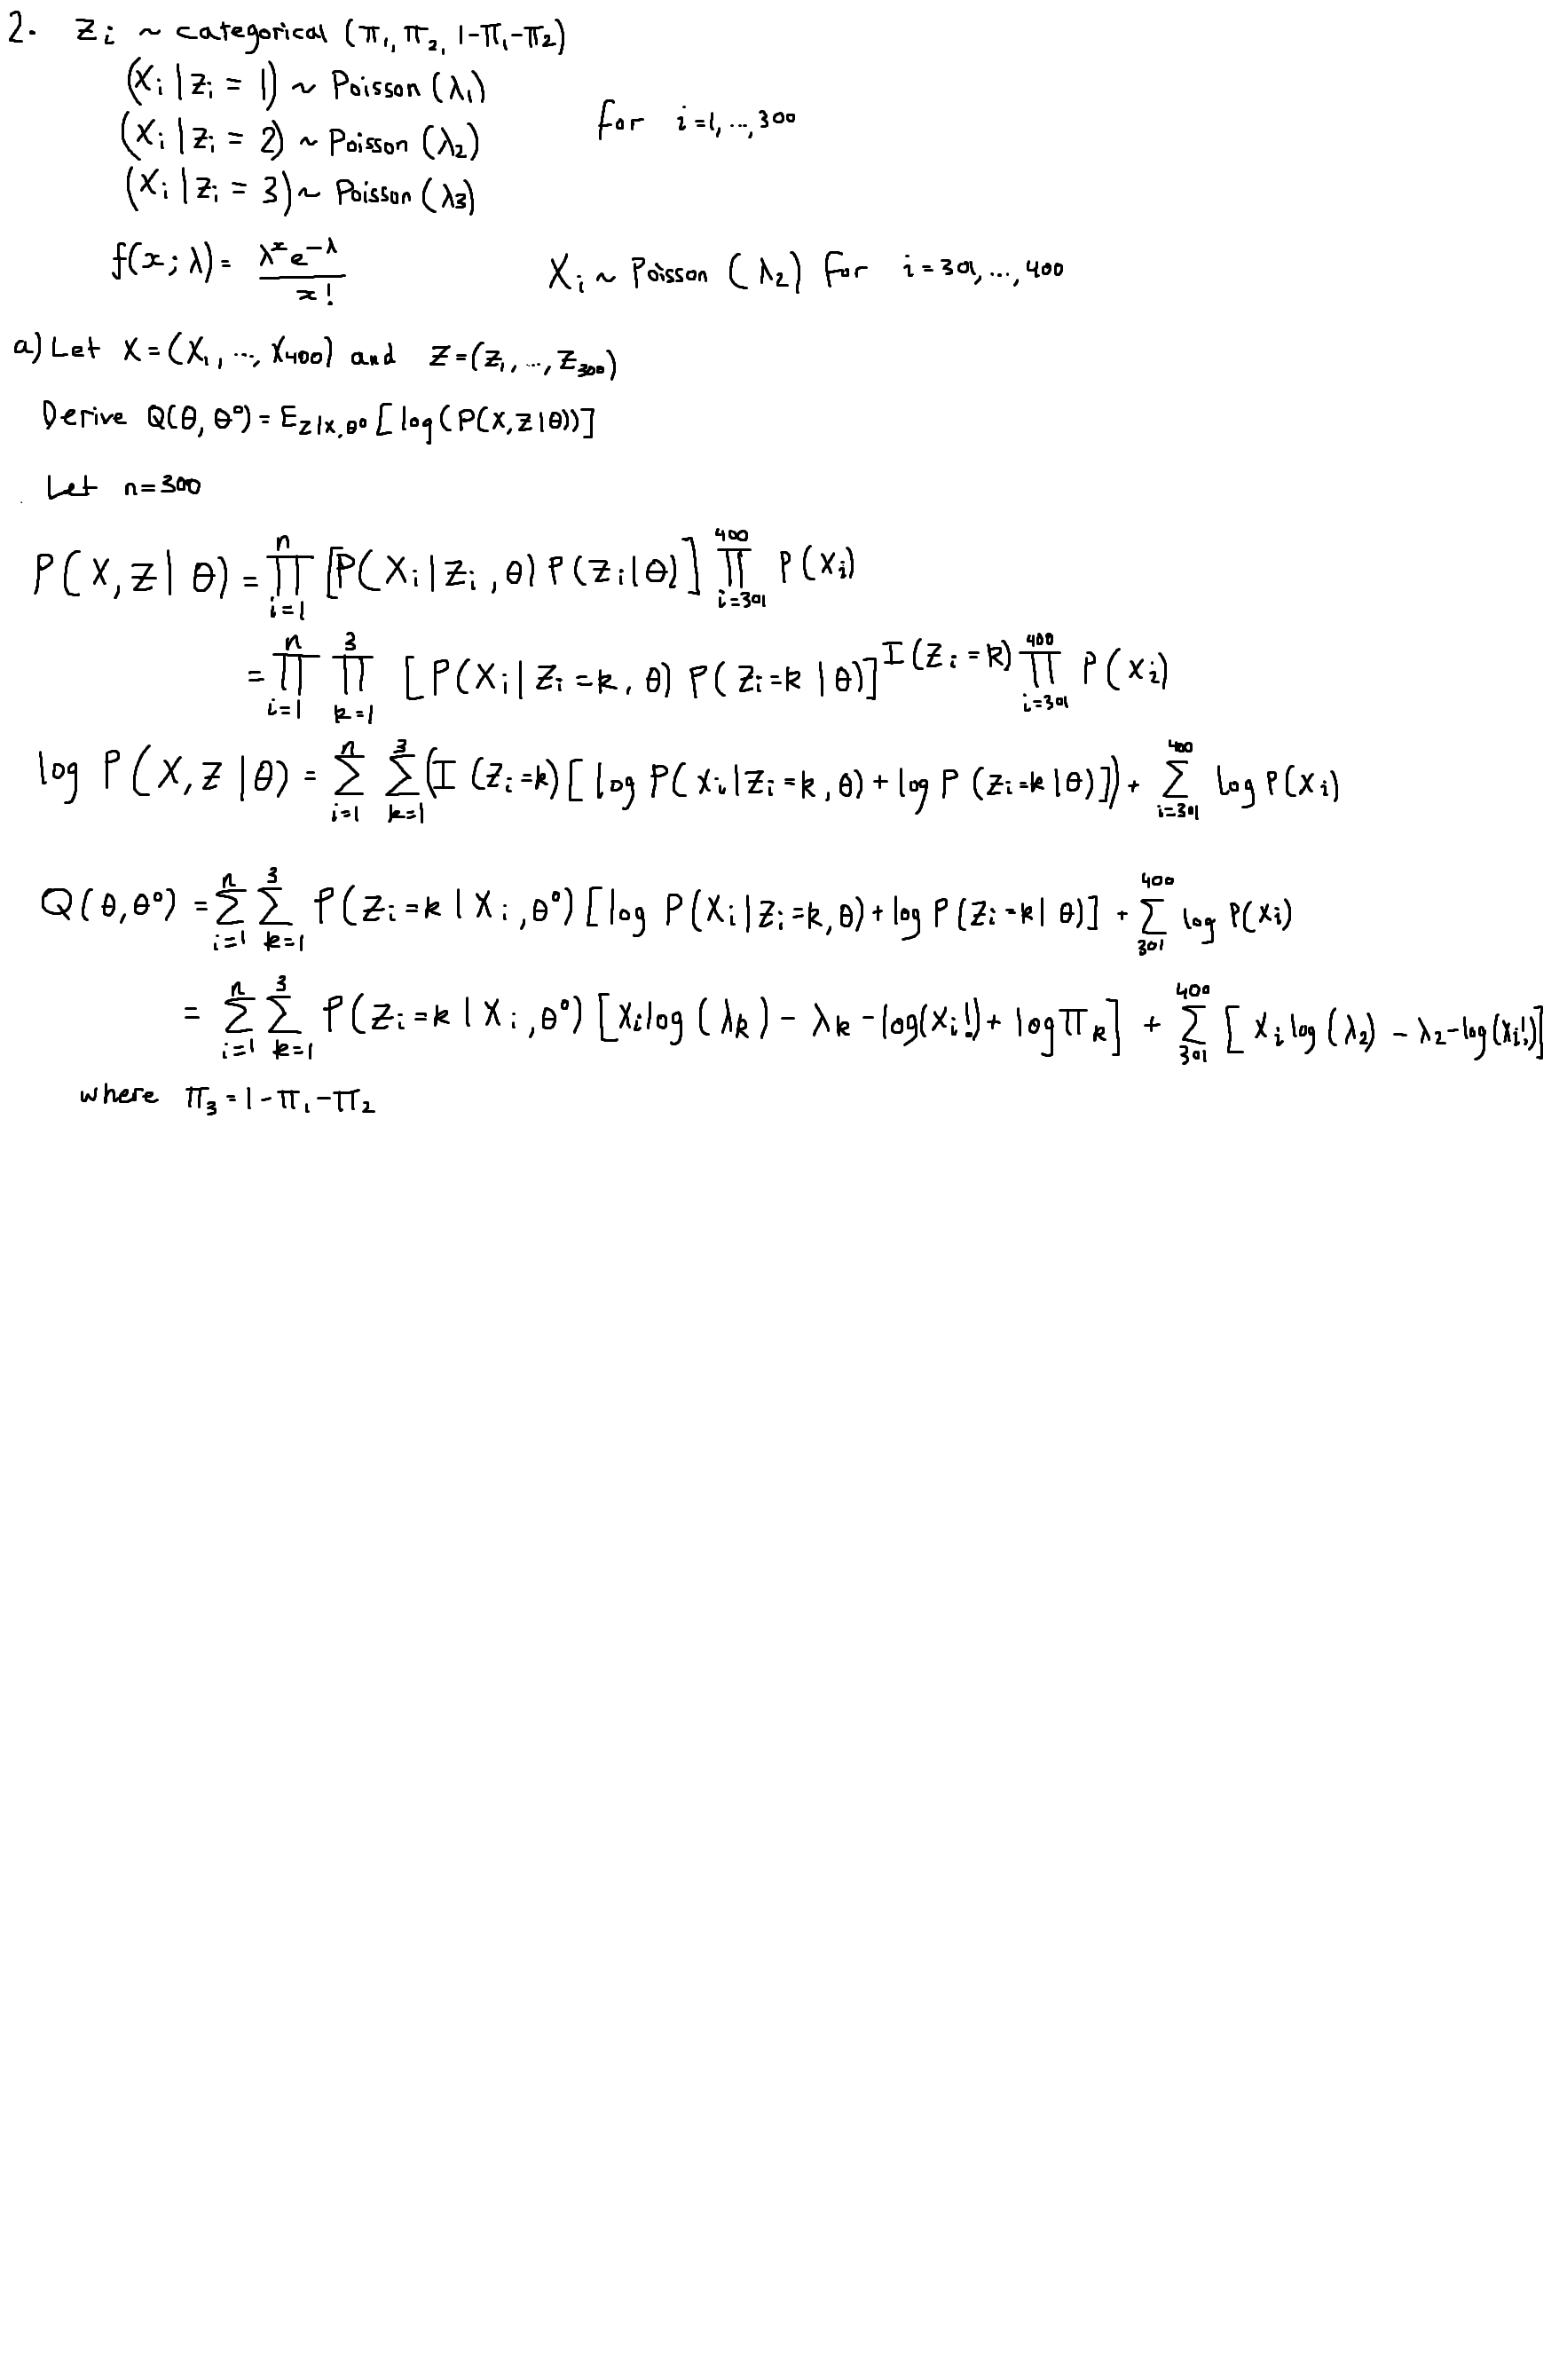 2. Zi ~ categorical (π₁, π₂, 1-π₁-π₂)
(Xi | Zi = 1) ~ Poisson (λ₁)
(Xi | Zi = 2) ~ Poisson (λ₂) for i=1, ..., 300
(Xi | Zi = 3) ~ Poisson (λ₃)
f(x; λ) = λ^x e^-λ / x! Xi ~ Poisson (λ₂) for i = 301, ..., 400
a) Let X = (X₁, ..., X₄₀₀) and Z = (Z₁, ..., Z₃₀₀)
Derive Q(θ, θ⁰) = E_Z|X,θ⁰ [log(P(X, Z|θ))]
Let n=300
P(X, Z | θ) = ∏_{i=1}^{n} [P(Xi | Zi, θ) P(Zi | θ)] ∏_{i=301}^{400} P(Xi)
= ∏_{i=1}^{n} ∏_{k=1}^{3} [P(Xi | Zi = k, θ) P(Zi = k | θ)]^{I(Zi = k)} ∏_{i=301}^{400} P(Xi)
log P(X, Z | θ) = ∑_{i=1}^{n} ∑_{k=1}^{3} (I (Zi = k) [log P(Xi | Zi = k, θ) + log P (Zi = k | θ)]) + ∑_{i=301}^{400} log P(Xi)
Q(θ, θ⁰) = ∑_{i=1}^{n} ∑_{k=1}^{3} P(Zi = k | Xi, θ⁰) [log P(Xi | Zi = k, θ) + log P(Zi = k | θ)] + ∑_{301}^{400} log P(Xi)
= ∑_{i=1}^{n} ∑_{k=1}^{3} P(Zi = k | Xi, θ⁰) [Xi log (λk) - λk - log(Xi!) + log πk] + ∑_{301}^{400} [Xi log (λ₂) - λ₂ - log(Xi!)]
where π₃ = 1 - π₁ - π₂